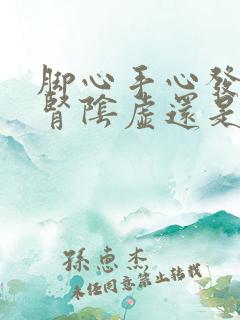 脚心手心發
腎陰虛還是
孫惠杰
未經同意禁止轉載